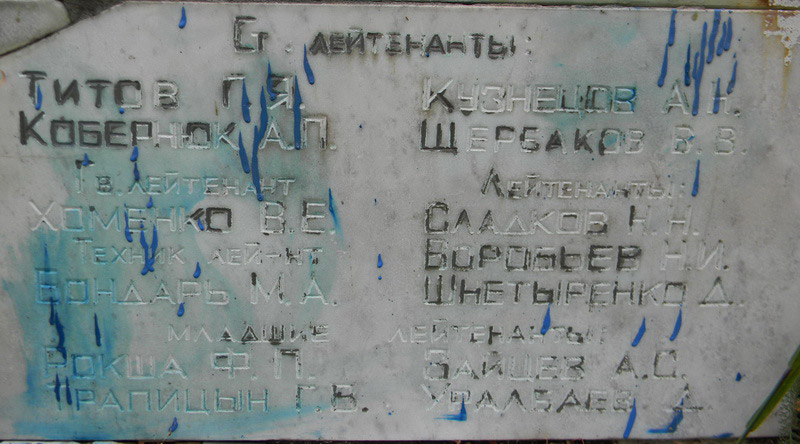 Ст. лейтенанты:
Титов Г.Я. Кузнецов А.Н.
Кобернюк А.П. Щербаков В.В.
Гв. лейтенант Лейтенанты:
Хоменко В.Е. Сладков Н.Н.
Техник лей-нт Воробьев Н.И.
Бондарь М.А. Шнетыренко Д.
младшие лейтенанты:
Рокша Ф.П. Зайцев А.С.
Трапицын Г.В. Уралбаев Д.